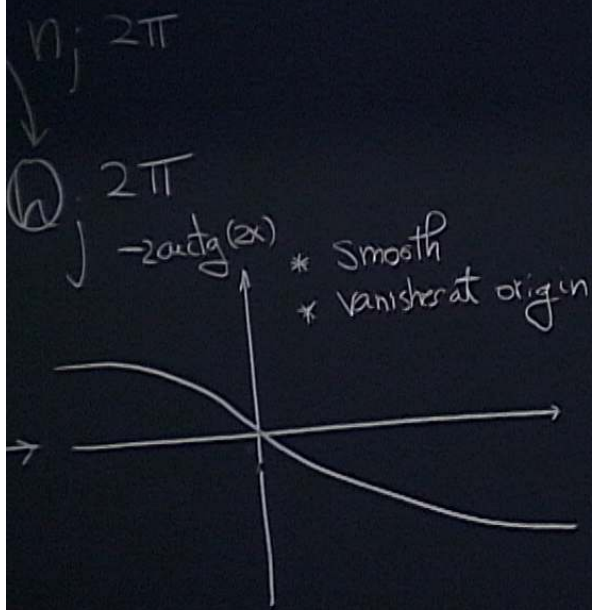 nj 2π
hj 2π
-2arctg(2x)
* smooth
* vanishes at origin